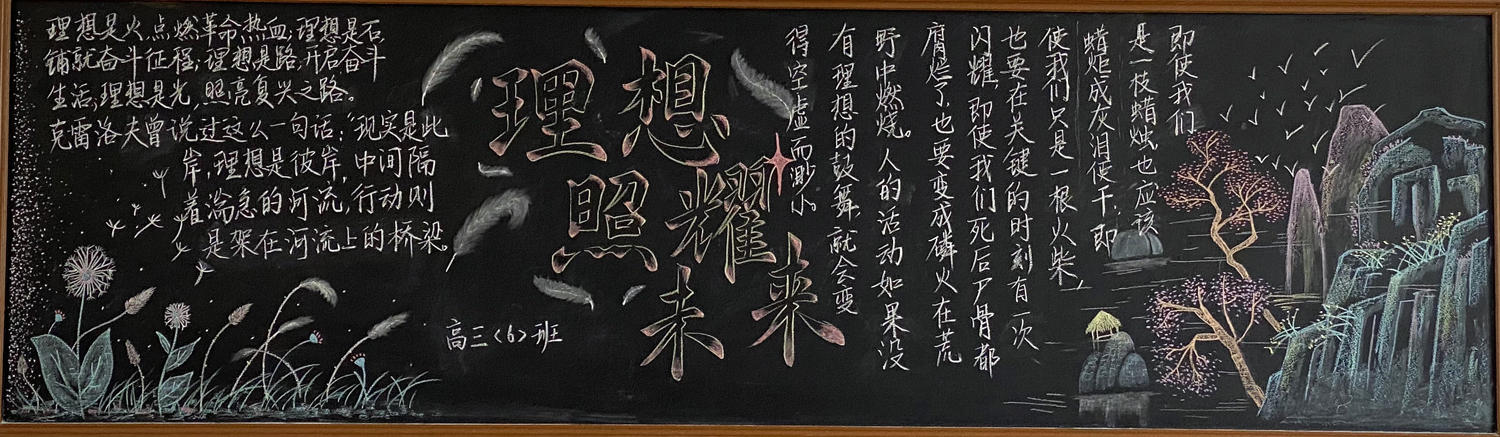 理想是火,点燃革命热血;理想是石
铺就奋斗征程;理想是路,开启奋斗
生活;理想是光,照亮复兴之路。
克雷洛夫曾说过这么一句话:"现实是此
岸,理想是彼岸,中间隔
着湍急的河流,行动则
是架在河流上的桥梁。
理想
照耀
未来
高三<6>班
即使我们
是一枝蜡烛,也应该
蜡炬成灰泪使干;即
使我们只是一根火柴,
也要在关键的时刻有一次
闪耀,即使我们死后尸骨都
腐烂了,也要变成磷火在荒
野中燃烧。人的活动如果没
有理想的鼓舞,就会变
得空虚而渺小